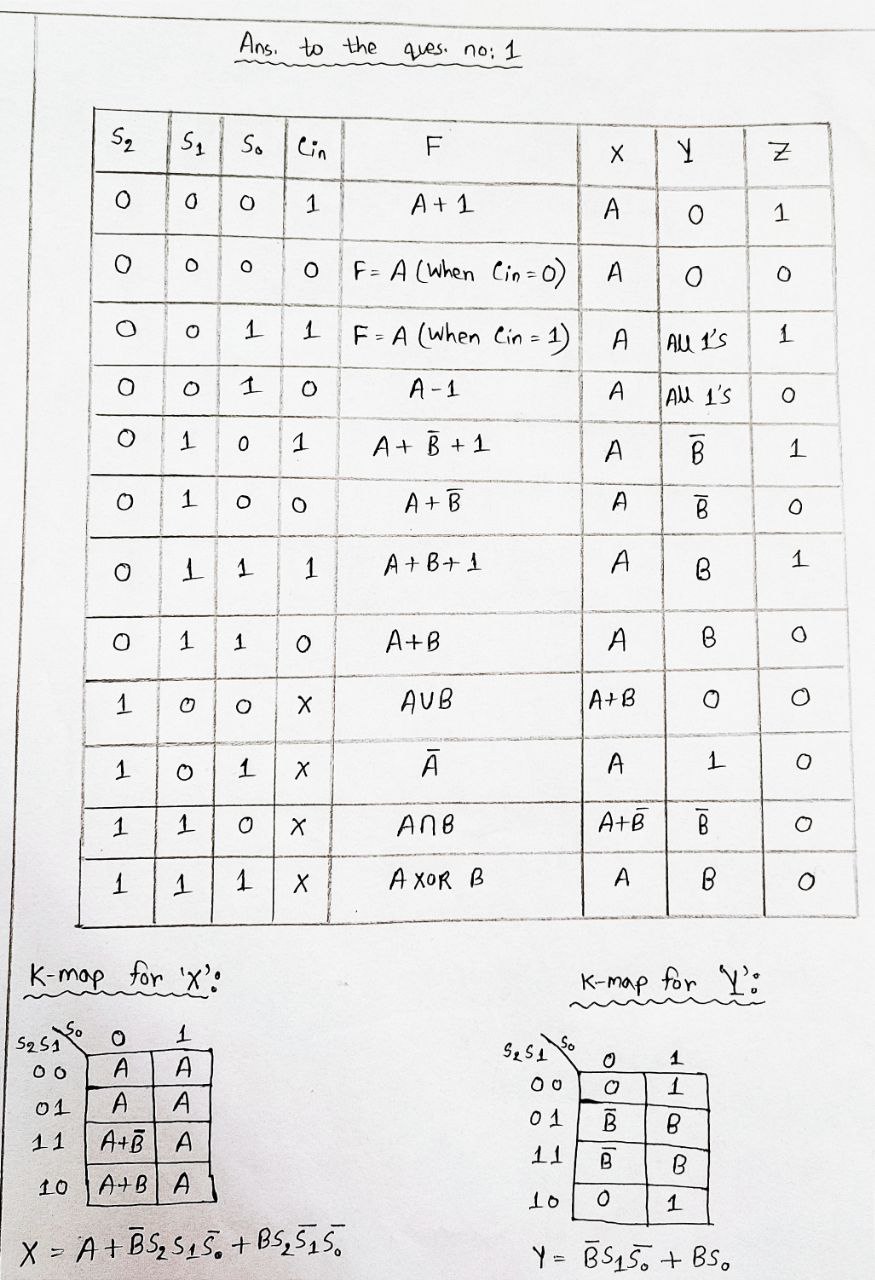 Ans. to the ques. no: 1
S₂ S₁ S₀ Cin F X Y Z
0 0 0 1 A+1 A 0 1
0 0 0 0 F= A (When Cin=0) A 0 0
0 0 1 1 F= A (When Cin = 1) A All 1's 1
0 0 1 0 A-1 A All 1's 0
0 1 0 1 A+ B̄ + 1 A B̄ 1
0 1 0 0 A + B̄ A B̄ 0
0 1 1 1 A+B+1 A B 1
0 1 1 0 A+B A B 0
1 0 0 X AUB A+B 0 0
1 0 1 X Ā A 1 0
1 1 0 X A∩B A+B̄ B̄ 0
1 1 1 X A XOR B A B 0
K-map for 'X':
S₂S₁ S₀ 0 1
00 A A
01 A A
11 A+B̄ A
10 A+B A
X = A + B̄S₂S₁S̄₀ + BS₂S̄₁S̄₀
K-map for 'Y':
S₂S₁ S₀ 0 1
00 0 1
01 B̄ B
11 B̄ B
10 0 1
Y = B̄S₁S̄₀ + BS₀